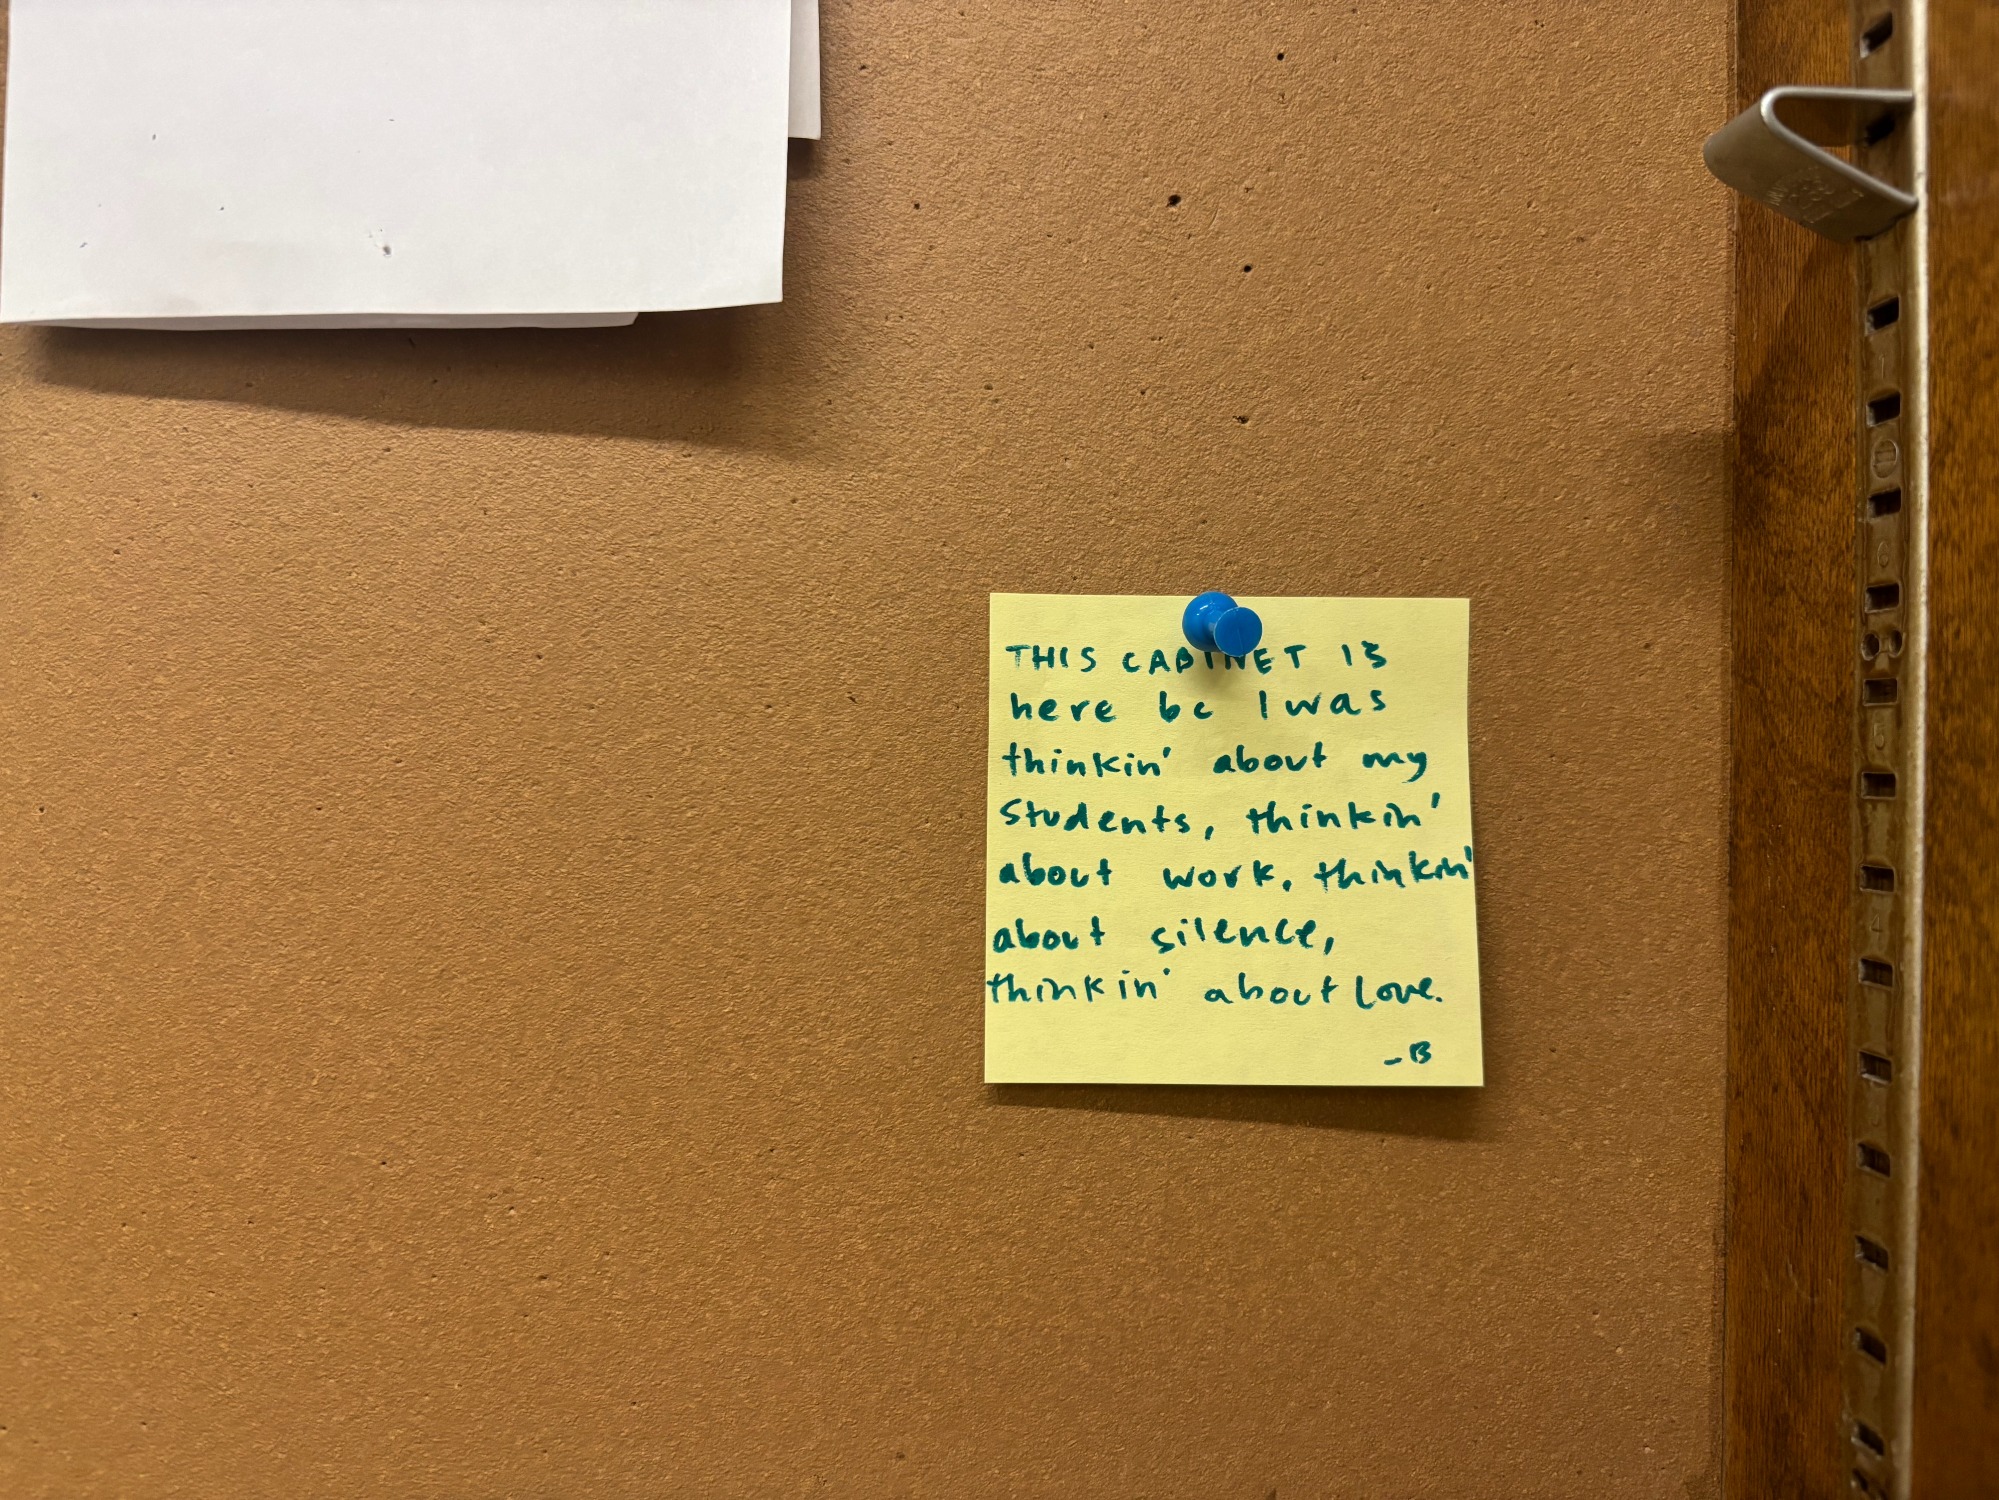 THIS CABINET IS
here bc I was
thinkin' about my
students, thinkin'
about work, thinkin'
about silence,
thinkin' about love.
-B
6
5
4